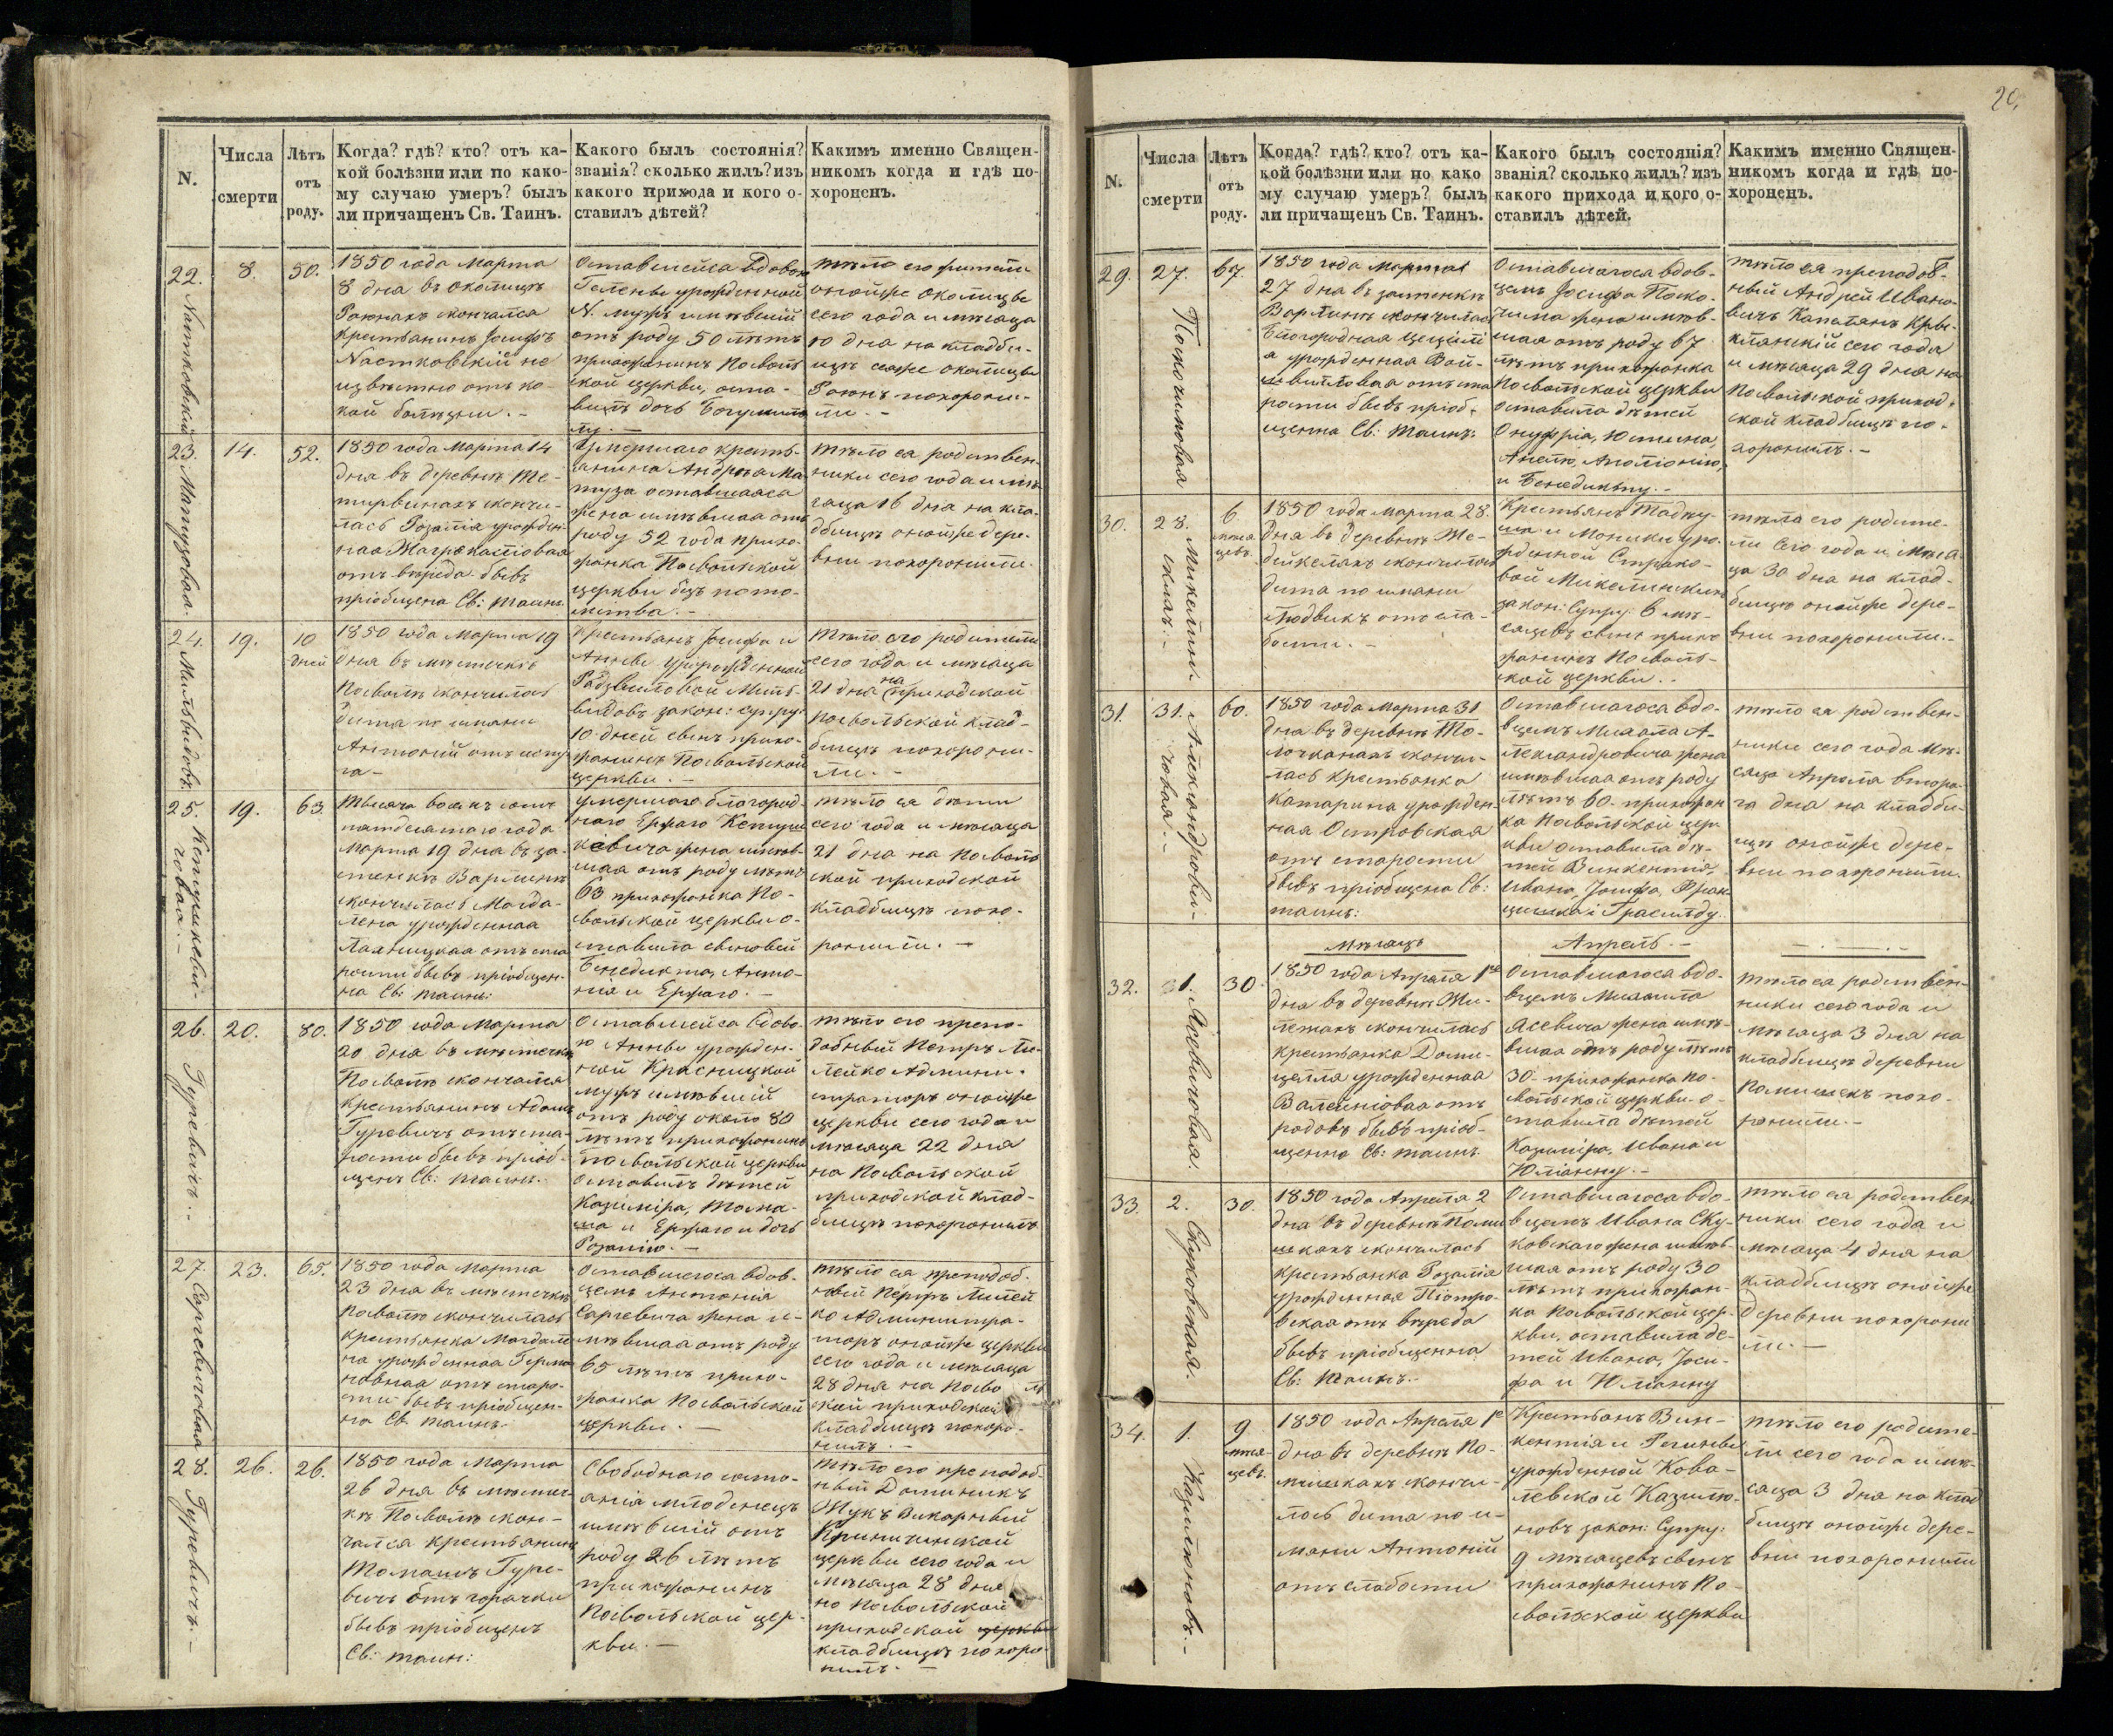 20.
N.
Числа
смерти
Лѣтъ
отъ
роду.
Когда? гдѣ? кто? отъ ка-
кой болѣзни или по како-
му случаю умеръ? былъ
ли причащенъ Св. Таинъ.
Какого былъ состоянія?
званія? сколько жилъ? изъ
какого прихода и кого о-
ставилъ дѣтей?
Какимъ именно Священ-
никомъ когда и гдѣ по-
хороненъ.
22.
8.
50.
1850 года Марта
8 дня въ околицѣ
скончался
крестьянинъ Іосифъ
не
извѣстно отъ ка-
кой болѣзни. -
Оставшейся вдовою
Гелены урожденной
N. мужъ имѣвшій
отъ роду 50 лѣтъ
прихожанинъ Посволь-
ской церкви, оста-
вилъ дочь Богумил-
лу. -
тѣло его жители
онойже околицы
сего года и мѣсяца
10 дня на кладби-
щѣ тоже околицы
похорони-
ли. -
23.
Матузовая.
14.
52.
1850 года Марта 14
дня въ деревнѣ Те-
тирвинахъ сконча-
лась Розалія урожден-
ная
отъ вереда бывъ
пріобщена Св: таинъ.
Умершаго кресть-
янина Андрея Ма-
туза оставшаяся
жена имѣвшая отъ
роду 52 года прихо-
жанка Посвольской
церкви безъ пото-
мства. -
тѣло ея родствен-
ники сего года и мѣ-
сяца 16 дня на кла-
дбищѣ онойже дере-
вни похоронили.
24.
Мильвидовъ.
19.
10
дней
1850 года Марта 19
дня въ мѣстечкѣ
Посволѣ скончилось
дитя по имяни
Антоній отъ
Крестьянъ Іосифа и
Анны урожденной
Радзвиловой Миль-
видовъ закон: супру:
10 дней сынъ прихо-
жанинъ Посвольской
церкви. -
Тѣло его родители
сего года и мѣсяца
21 дня на приходской
посвольской клад-
бищѣ похорони-
ли. -
25.
19.
63.
Тысяча восемь сотъ
пятдесятаго года
Марта 19 дня въ за-
стенкѣ Варлинѣ
скончилась Магда-
лена урожденная
отъ ста
рости бывъ пріобщен-
на Св: таинъ:
умершаго благород-
наго Ержаго
кевича жена имѣв-
шая отъ роду лѣтъ
63 прихожанка По-
свольской церкви о-
ставила сыновей
Бенедикта, Анто-
нія и Ержаго. -
тѣло ея дѣти
сего года и мѣсяца
21 дня на Посволь
ской приходской
кладбищѣ похо-
ронили. -
26.
Гуревичъ. -
20.
80.
1850 года Марта
20 дня въ мѣстечкѣ
Посволѣ скончался
крестьянинъ Адамъ
Гуревичъ отъ ста-
рости бывъ пріоб-
щенъ Св: таинъ. -
Оставшейся вдово-
ю Анны урожден-
ной Красницкой
мужъ имѣвшій
отъ роду около 80
лѣтъ прихожанинъ
посвольской церкви
оставилъ дѣтей
Казиміра, Тома-
ша и Ержаго и дочь
Розалію. -
тѣло его препо-
добный Петръ Ли-
лейко Админи-
страторъ онойже
церкви сего года и
мѣсяца 22 дня
на Посвольской
приходской клад-
бищѣ похоронилъ
27.
Саргевичовая
23.
65.
1850 года Марта
23 дня въ мѣстечкѣ
Посволѣ скончилась
крестьянка Магдале-
на урожденная
отъ старо-
сти бывъ пріобщен-
на Св. таинъ.
Оставшегося вдов-
цемъ Антонія
Саргевича жена и-
мѣвшая отъ роду
65 лѣтъ прихо-
жанка Посвольской
церкви. -
тѣло ея преподоб-
ный Петръ Лилей
ко Администра-
торъ онойже церкви
сего года и мѣсяца
28 дня на Посволь
ской приходской
кладбищѣ похоро-
нилъ. -
28.
Гуревичъ. -
26.
26.
1850 года Марта
26 дня въ мѣстеч-
кѣ Посволѣ скон-
чался крестьянинъ
Томашъ Гуре-
вичъ отъ горячки
бывъ пріобщенъ
Св: таин:
Свободнаго состо-
янія младенецъ
имѣвшій отъ
роду 26 лѣтъ
прихожанинъ
Посвольской цер-
кви. -
тѣло его преподоб-
ный Доминикъ
Жукъ Викарный
церкви сего года и
мѣсяца 28 дня
на Посвольской
приходской церкви
кладбищѣ похоро-
нилъ. -
N.
Числа
смерти
Лѣтъ
отъ
роду.
Когда? гдѣ? кто? отъ ка-
кой болѣзни или по како
му случаю умеръ? былъ
ли причащенъ Св. Таинъ.
Какого былъ состоянія?
званія? сколько жилъ? изъ
какого прихода и кого о-
ставилъ дѣтей.
Какимъ именно Священ-
никомъ когда и гдѣ по-
хороненъ.
29.
27.
67.
1850 года Марта
27 дня въ застенкѣ
Варлинѣ скончилась
Благородная Цециліи
я урожденная Вой-
отъ ста
рости бывъ пріоб-
щенна Св: таинъ.
Оставшагося вдов-
цемъ Іосифа Поко-
жена имѣв-
шая отъ роду 67
лѣтъ прихожанка
Посвольской церкви
оставила дѣтей
Онуфрія, Юстина,
Анелю, Аполіонію,
и Бенедикту. -
тѣло ея преподоб-
ный Андрей Ивано-
вичъ Капелянъ Кры-
клянскій сего года
и мѣсяца 29 дня на
Посвольской приход-
ской кладбищѣ по-
хоронилъ. -
30.
28.
6
мѣся
цевъ.
1850 года Марта 28
дня въ деревнѣ
скончилось
дитя по имяни
Людвикъ отъ сла-
бости. -
Крестьянъ Тадеу-
ша и Моники уро-
жденной
вой
закон: Супру: 6 мѣ-
сяцевъ сынъ прихо
жанинъ Посволь-
ской церкви. -
тѣло его родите-
ли сего года и мѣся-
ца 30 дня на клад-
бищѣ онойже дере-
вни похоронили. -
31.
Александрови-
човая. -
31.
60.
1850 года Марта 31
дня въ деревнѣ То-
лочканахъ сконча-
лась крестьянка
Катарина урожден-
ная Островская
отъ старости
бывъ пріобщена Св:
таинъ:
Оставшагося вдо-
вцемъ Михала А-
лександровича жена
имѣвшая отъ роду
лѣтъ 60 прихожан
ка Посвольской цер-
кви оставила дѣ-
тей Винкентія,
Ивана, Іосифа, Фран
цишка и Грасильду.
тѣло ея родствен-
ники сего года мѣ-
сяца Апреля второ-
го дня на кладби-
щѣ онойже дере-
вни похоронили.
мѣсяцъ
Апрель. -
32.
Ясевичовая.
1.
30.
1850 года Апреля 1го
дня въ деревнѣ Жи-
лежахъ скончилась
крестьянка Доми-
целля урожденная
отъ
родовъ бывъ пріоб-
щенна Св: таинъ.
Оставшагося вдо-
вцемъ Михаила
Ясевича жена имѣ-
вшая отъ роду лѣтъ
30 прихожанка По-
свольской церкви о-
ставила дѣтей
Казиміра, Ивана и
Юліанну. -
тѣло ея родствен-
ники сего года и
мѣсяца 3 дня на
кладбищѣ деревни
похо-
ронили. -
33.
Скуковская.
2.
30.
1850 года Апреля 2
дня въ деревнѣ Поми
шкахъ скончилась
крестьянка Розалія
урожденная Піотро-
вская отъ вереда
бывъ пріобщенна
Св: таинъ. -
Оставшагося вдо-
вцемъ Ивана Ску-
ковскаго жена имѣв-
шая отъ роду 30
лѣтъ прихожан-
ка Посвольской цер-
кви, оставила де-
тей Ивана, Іоси-
фа и Юлианну
тѣло ея родствен
ники сего года и
мѣсяца 4 дня на
кладбищѣ онойже
деревни похорони
ли. -
34.
1.
9
мѣся-
цевъ.
1850 года Апреля 1е
дня въ деревнѣ По-
мишкахъ скончи-
лось дитя по и-
мяни Антоній
отъ слабости
Крестьянъ Вин-
кентія и
урожденной Кова-
левской
новъ закон: Супру:
9 мѣсяцевъ сынъ
прихожанинъ По-
свольской церкви
тѣло его родите-
ли сего года и мѣ-
сяца 3 дня на клад
бищѣ онойже дере-
вни похоронили